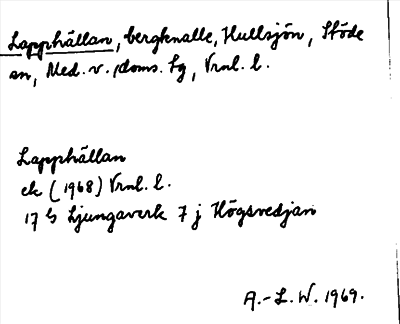 Lapphällan, bergknalle, Hullsjön, Stöde
sn, Med. v. doms. sg, Vrnl. l.
Lapphällan
ek (1968) Vrnl. l.
17 G Ljungaverk 7 j Högsvedjan
A.-L. W. 1969.